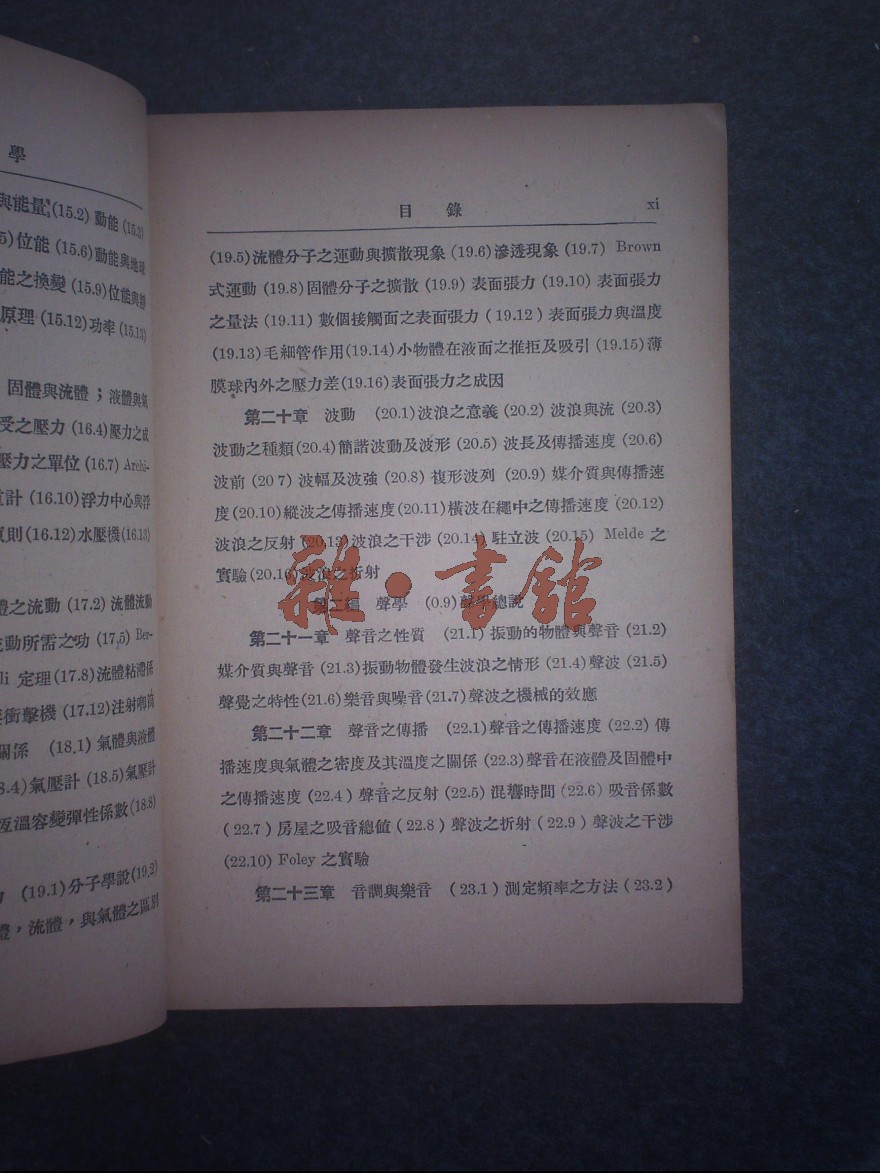 學
與能量(15.2) 動能 (15.3)
5)位能 (15.6)動能與地球
能之換變 (15.9)位能與
原理 (15.12)功率 (15.13)
固體與流體；液體與氣
受之壓力 (16.4)壓力之成
壓力之單位 (16.7) Archi-
計 (16.10)浮力中心與浮
則(16.12)水壓機(16.13)
體之流動 (17.2) 流體流動
動所需之功 (17.5) Ber-
li 定理(17.8)流體粘滯係
衝擊機 (17.12)注射唧筒
關係 (18.1) 氣體與液體
8.4)氣壓計 (18.5)氣壓計
恆溫容變彈性係數(18.8)
(19.1)分子學說(19.2)
體，流體，與氣體之區別
目 錄 xi
(19.5)流體分子之運動與擴散現象 (19.6)滲透現象 (19.7) Brown
式運動 (19.8)固體分子之擴散 (19.9) 表面張力 (19.10) 表面張力
之量法 (19.11) 數個接觸面之表面張力 (19.12) 表面張力與溫度
(19.13)毛細管作用(19.14)小物體在液面之推拒及吸引 (19.15)薄
膜球內外之壓力差(19.16)表面張力之成因
第二十章 波動 (20.1)波浪之意義(20.2) 波浪與流 (20.3)
波動之種類(20.4)簡諧波動及波形 (20.5) 波長及傳播速度 (20.6)
波前 (20 7) 波幅及波強 (20.8) 複形波列 (20.9) 媒介質與傳播速
度(20.10)縱波之傳播速度(20.11)橫波在繩中之傳播速度 (20.12)
波浪之反射 (20.13)波浪之干涉 (20.14) 駐立波 (20.15) Melde 之
實驗(20.16)波浪之折射
第二編 聲學 (0.9)聲學總說
雜·書館
第二十一章 聲音之性質 (21.1) 振動的物體與聲音 (21.2)
媒介質與聲音 (21.3)振動物體發生波浪之情形 (21.4)聲波 (21.5)
聲覺之特性(21.6)樂音與噪音(21.7)聲波之機械的效應
第二十二章 聲音之傳播 (22.1)聲音之傳播速度 (22.2) 傳
播速度與氣體之密度及其溫度之關係 (22.3)聲音在液體及固體中
之傳播速度 (22.4) 聲音之反射 (22.5) 混響時間 (22.6) 吸音係數
(22.7) 房屋之吸音總値 (22.8) 聲波之折射 (22.9) 聲波之干涉
(22.10) Foley 之實驗
第二十三章 音調與樂音 (23.1) 測定頻率之方法 (23.2)